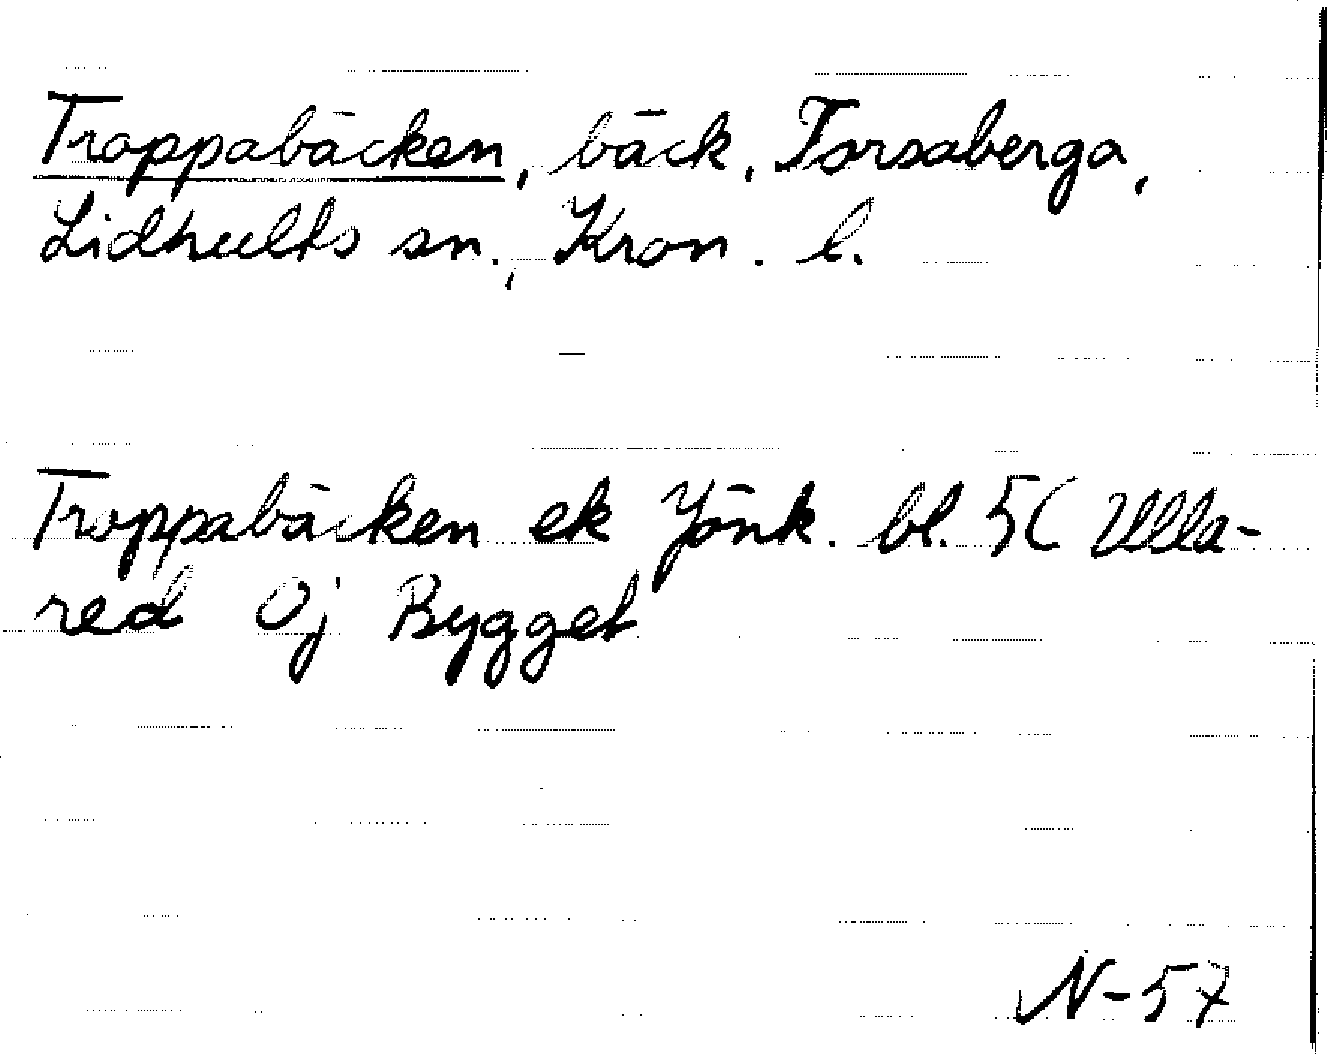 Trappabäcken, bäck, Torsaberga,
Lidhults sn., Kron. l.
Trappabäcken ek Jönk. bl. 5C Ulla-
red Oj Bygget
N-57